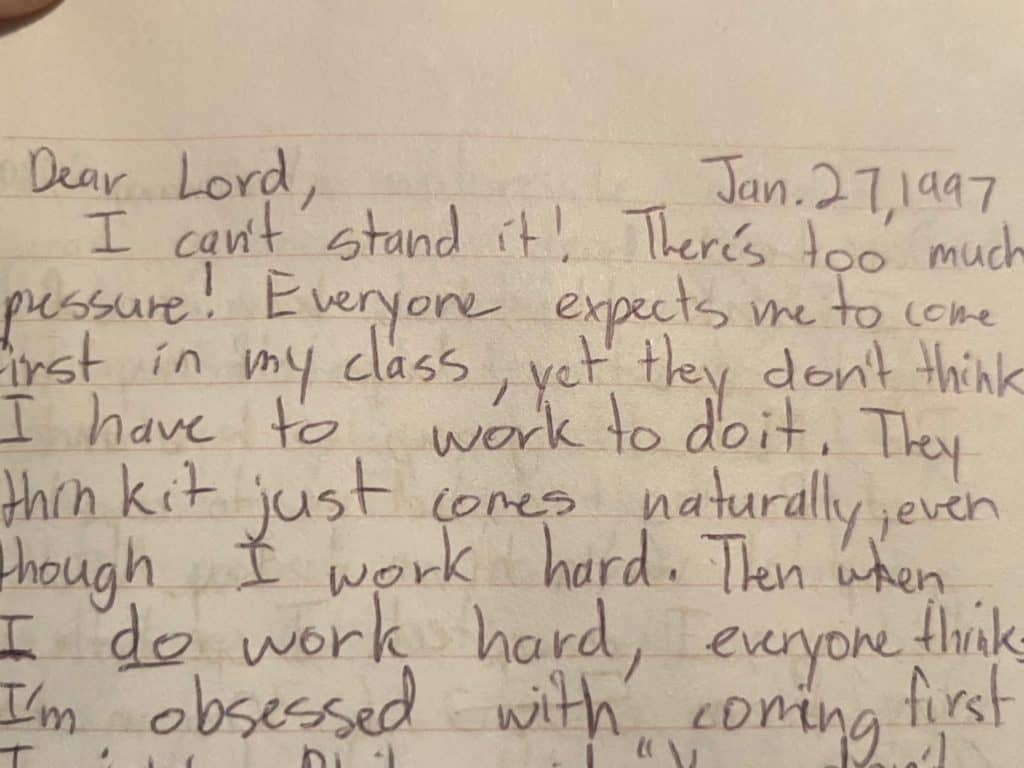 Dear Lord, Jan. 27, 1997
I can't stand it! There's too much
pressure! Everyone expects me to come
first in my class, yet they don't think
I have to work to do it. They
think it just comes naturally, even
though I work hard. Then when
I do work hard, everyone thinks
I'm obsessed with coming first